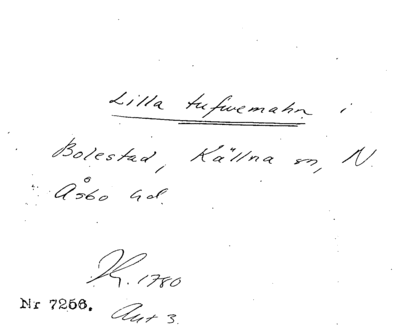 Lilla tufwemahn i
Bolestad, Källna sn, N.
Åsbo hd.
1780
Nr 7256. Akt 3.